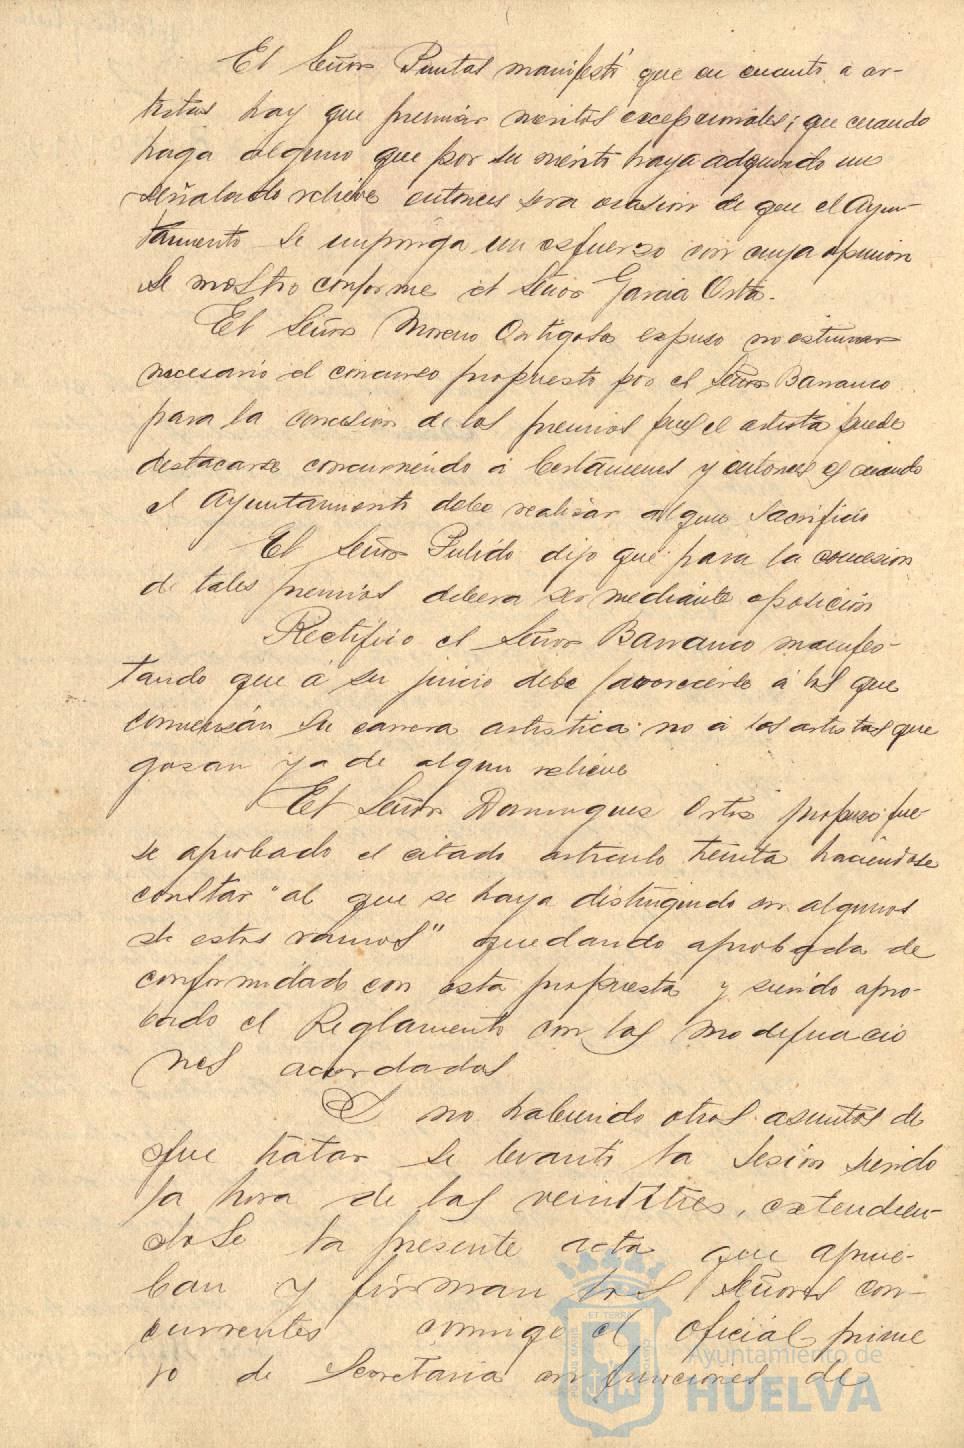 El Señor Puntas manifestó que en cuanto a ar-
tistas hay que premiar meritos excepcionales; que cuando
haya alguno que por su merito haya adquirido un
señalado relieve entonces sera ocasion de que el Ayun-
tamiento se imponga un esfuerzo con cuya opinion
se mostro conforme el Señor Garcia Orta.
El Señor Moreno Ortigosa expuso no estimar
necesario el concurso propuesto por el Señor Barranco
para la concesion de los premios pues el artista puede
destacarse concurriendo á Certámenes y entonces es cuando
el Ayuntamiento debe realizar algun sacrificio
El Señor Pulido dijo que para la concesion
de tales premios debera ser mediante oposición
Rectifico el Señor Barranco manifes-
tando que á su juicio debe favorecerse á los que
comienzan su carrera artistica no á los artistas que
gozan ya de algun relieve
El Señor Dominguez Ortiz propuso fue-
se aprobado el citado articulo treinta haciendose
constar "al que se haya distinguido en algunos
de estos ramos" quedando aprobada de
conformidad con esta propuesta y siendo apro-
bado el Reglamento con las modificacio
nes acordadas
Y no habiendo otros asuntos de
que tratar se levantó la sesión siendo
la hora de las veintitres, extendien-
dose la presente acta que aprue-
ban y firman los Señores con-
currentes conmigo el oficial prime
ro de Secretaria en funciones de
Ayuntamiento de
HUELVA